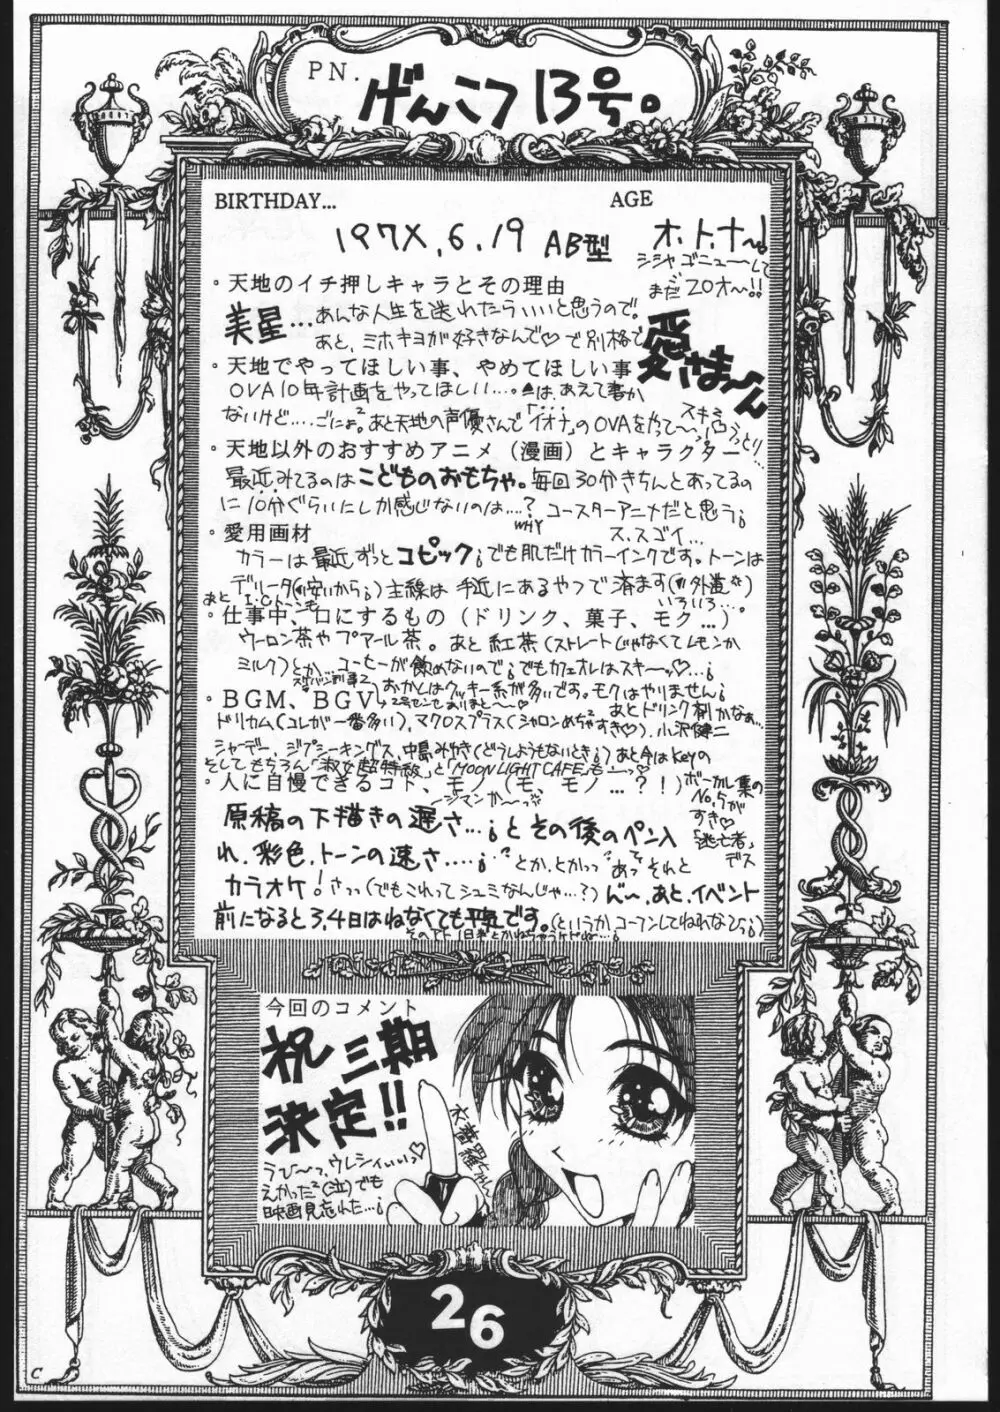 PN.
げんこつ13号。
BIRTHDAY... AGE
197X.6.19 AB型 オ、ト、ナ〜!
シシャゴニューして
まだ20才〜!!
・天地のイチ押しキャラとその理由
美星… あんな人生を送れたらいいと思うので。
あと、ミホキヨが好きなんで♡で別格で
愛さま〜ん
・天地でやってほしい事、やめてほしい事
OVA10年計画をやってほしい…。は、あえて書か
ないけど…ごにょ² あと天地の声優さんで「イオナ」のOVAをやって〜
・天地以外のおすすめアニメ(漫画)とキャラクター
最近みてるのはこどものおもちゃ。毎回30分きちんとあってるの
に10分ぐらいにしか感じないのは…? コースターアニメだと思う¡
WHY ス、スゴイ…
・愛用画材
カラーは最近ずっとコピック¡でも肌だけカラーインクです。トーンは
デリータ(安いから¡)主線は手近にあるやつで済ます(外道)
あとI.Cトーンも いろいろ…。
・仕事中、口にするもの(ドリンク、菓子、モク…)
ウーロン茶やプアール茶。あと紅茶(ストレートじゃなくてレモンか
ミルク)とか… コーヒーが飲めないので¡でもカフェオレはスキ〜ッ♡…¡
おかしはクッキー系が多いです。モクはやりません¡
あとドリンク剤かなぁ…
・BGM、BGV
ドリカム(コレが一番多い)、マクロスプラス(シャロンめちゃ²すき♡)、小沢健二
シャーデー、ジプシーキングス、中島みゆき(どうしようもないとき¡)あと今はkeyの
ボーカル集の
No.5が
すき♡
「逃亡者」
デス
そしてもちろん「淑女超特急」と「MOON LIGHT CAFE」も〜っ♡
・人に自慢できるコト、モノ(モ、モノ…?!)
ジマンか〜っ
原稿の下描きの遅さ…¡とその後のペン入
れ、彩色、トーンの速さ…¡とか、とかっっ あっ² それと
カラオケ! さっっ(でもこれってシュミなんじゃ…?) ど〜、あと、イベント
前になると3,4日はねなくても平気です。(というかコーフンしてねれないっス¡)
今回のコメント
祝三期
決定!!
うひ〜っ、ウレシィいいっ♡
えかった²(泣)でも
映画見忘れた…¡
26
C